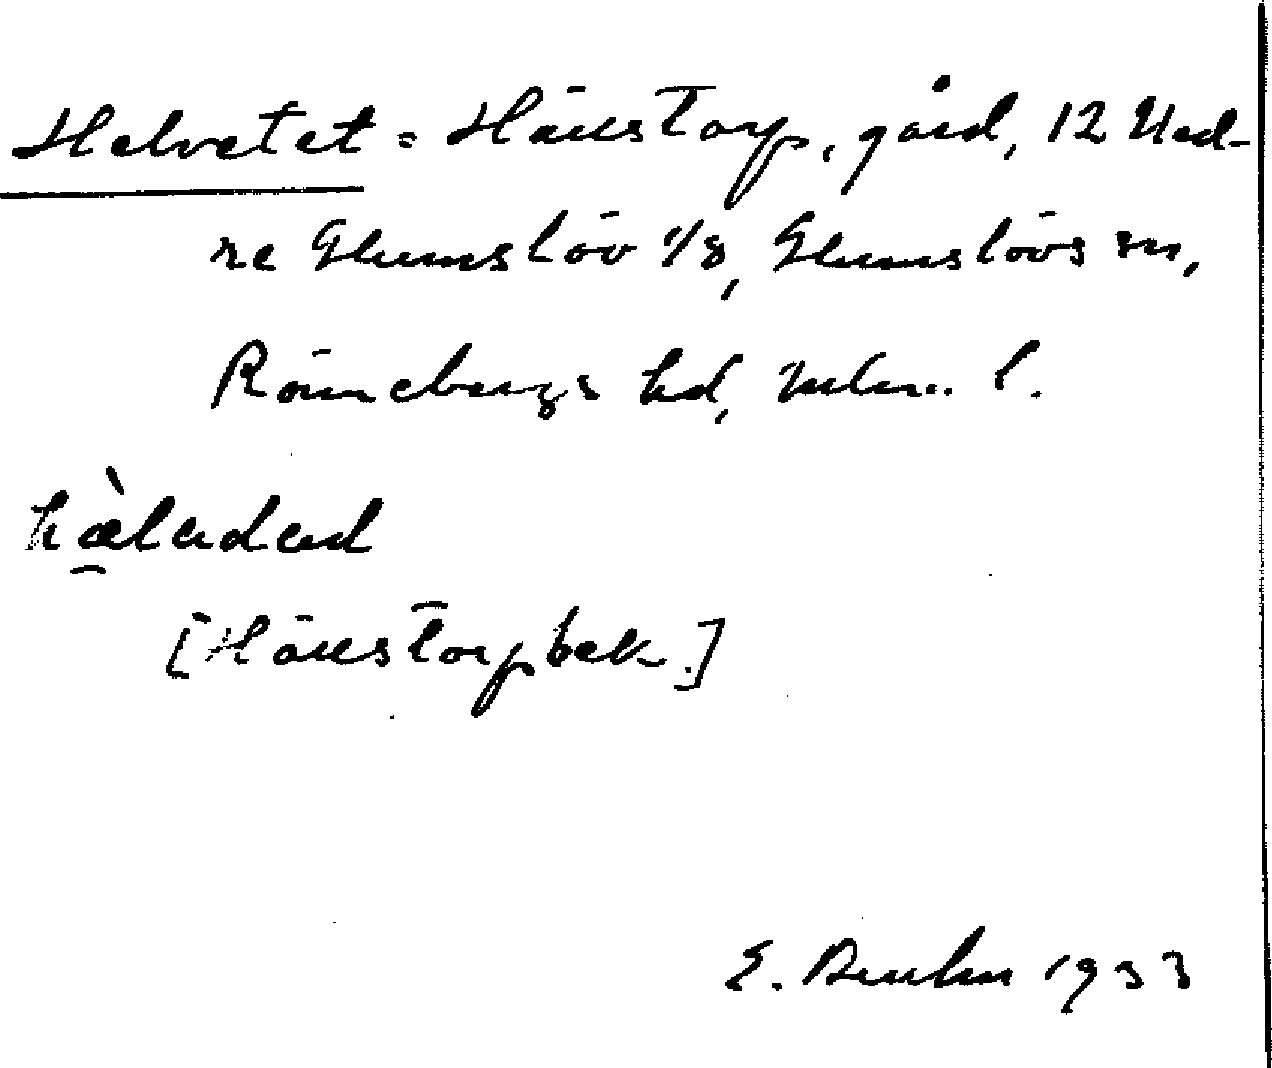 Helvetet = Hälstorp, gård, 12 Ned-
re Glumslöv 1/8, Glumslövs sn,
Rönnebergs hd, Mlm. l.
[Hälstorp bek.]
E. 1933